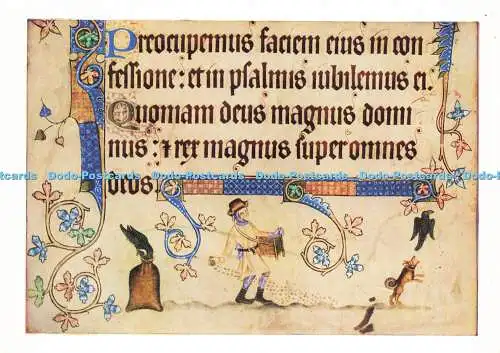 Preocupemus faciem eius in con
fessione: et in psalmis iubilemus ei.
Quoniam deus magnus domi
nus: ⁊ rex magnus super omnes
deos.
Postcards Dodo-Postcards Dodo-Postcards Dodo-Postcards Dodo-Postcards Dodo-Postcards